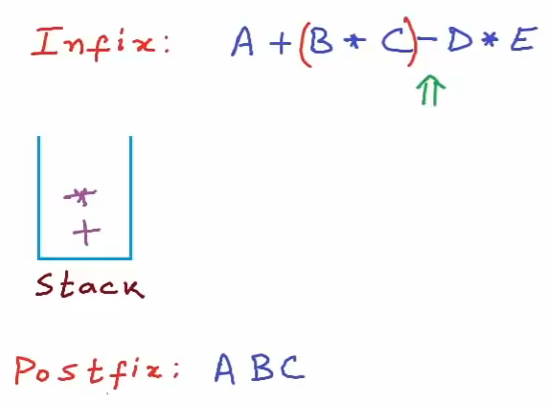 Infix: A + (B * C) - D * E
*
+
Stack
Postfix: A B C